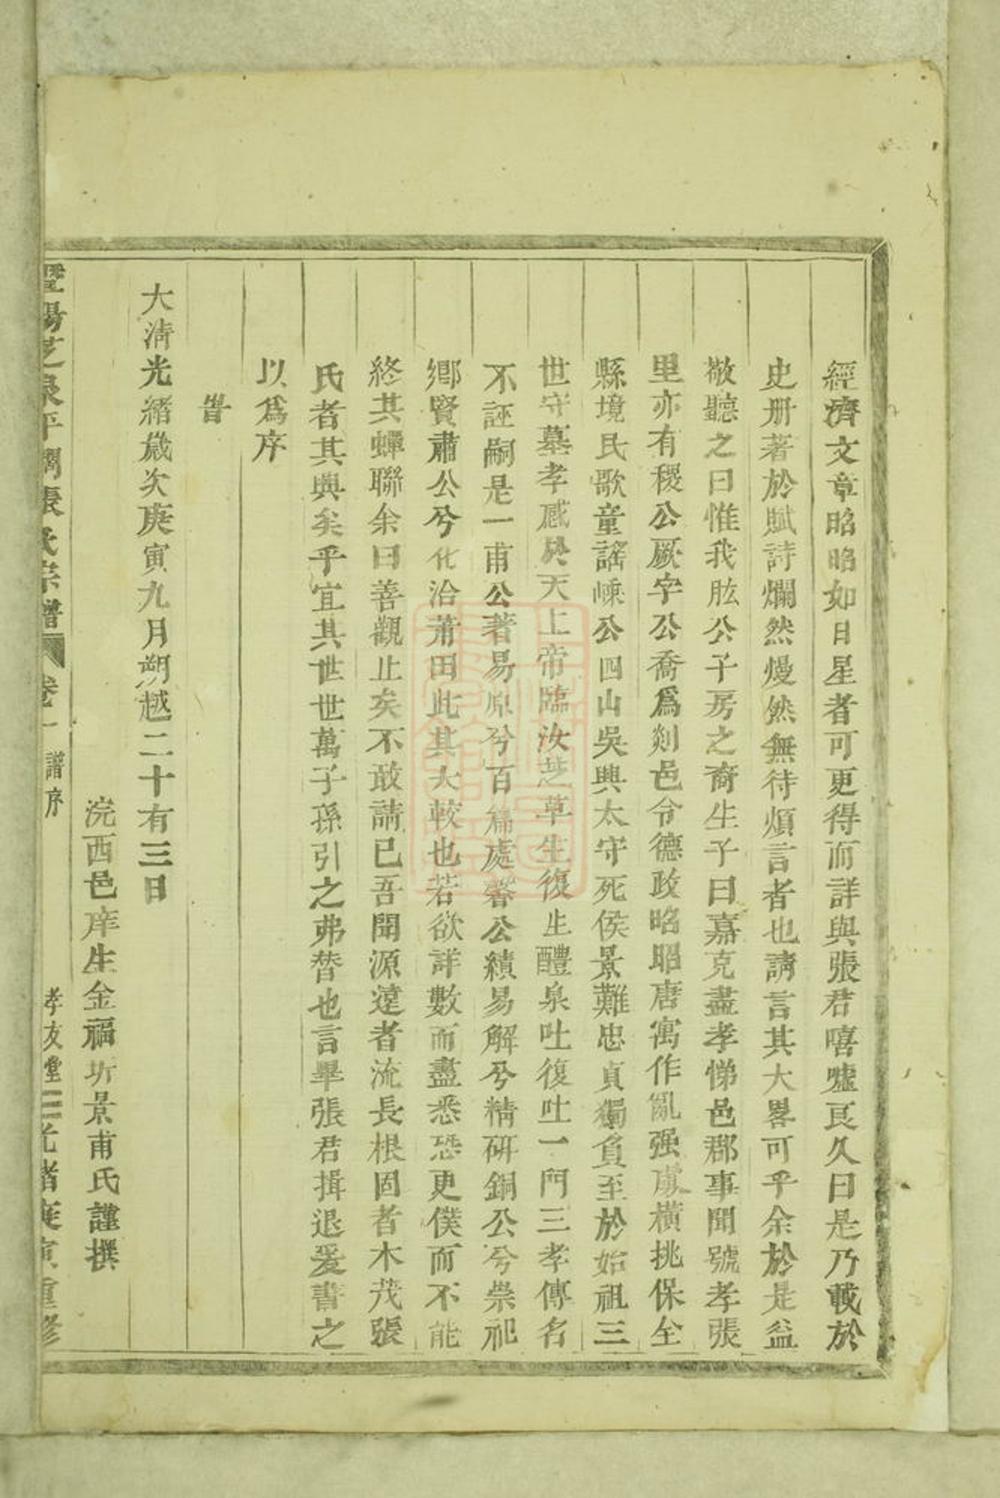 經濟文章昭昭如日星者可更得而詳與張君嘻噓良久曰是乃載於
史册著於賦詩爛然熳然無待煩言者也請言其大畧可乎余於是益
敬聽之曰惟我肱公子房之裔生子曰嘉克盡孝悌邑郡事聞號孝張
里亦有稷公厥字公喬爲剡邑令德政昭昭唐寓作亂强虜橫挑保全
縣境民歌童謠嵊公四山吳興太守死侯景難忠貞獨負至於始祖三
世守墓孝感於天上帝臨汝芝草生復生醴泉吐復吐一門三孝傳名
不誣嗣是一甫公著易原兮百篇處馨公續易解兮精研銅公兮崇祀
鄉賢肅公兮化洽莆田此其大較也若欲詳數而盡悉恐更僕而不能
終其蟬聯余曰善觀止矣不敢請已吾聞源遠者流長根固者木茂張
氏者其興矣乎宜其世世萬子孫引之弗替也言畢張君揖退爰書之
以爲序
旹
大清光緒歲次庚寅九月朔越二十有三日
浣西邑庠生金福圻景甫氏謹撰
暨陽芝泉平闊張氏宗譜 卷一 譜序 孝友堂 光緒庚寅重修